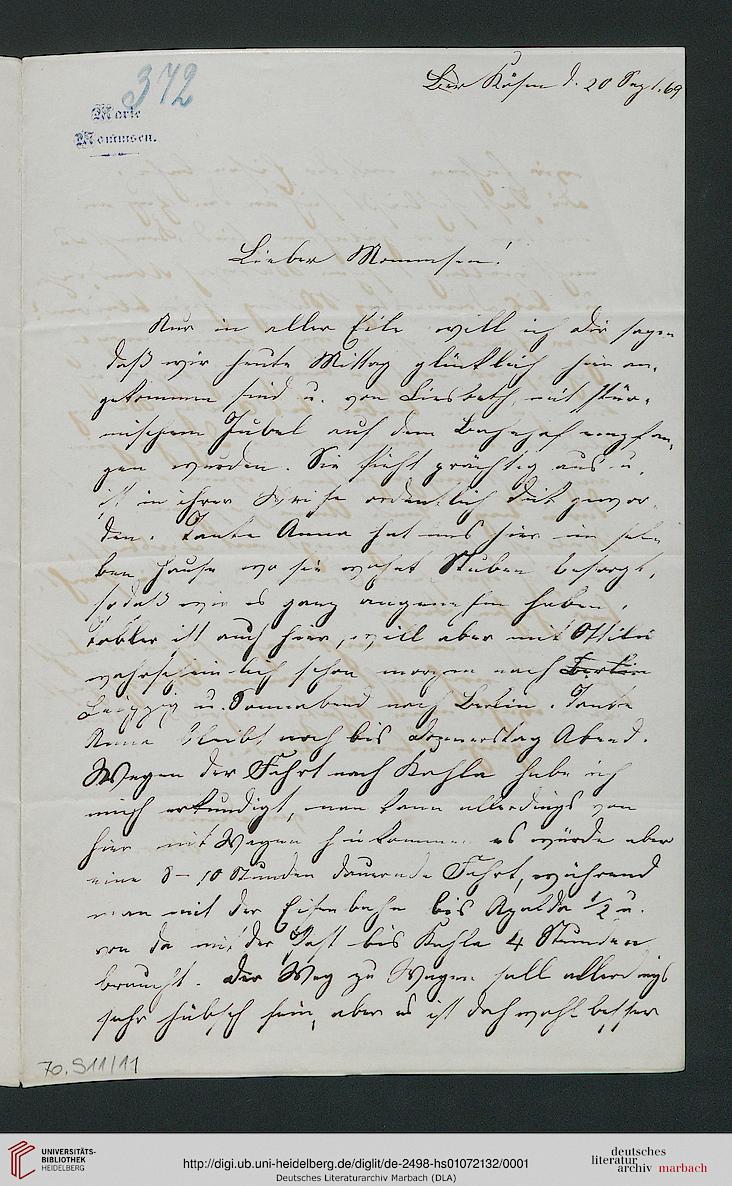 372
Marie
Mommsen.
Kösen d. 20 Sept. 69
Lieber Mommsen!
Nur in aller Eile will ich dir sagen
daß wir heute Mittag glücklich hier an-
gekommen sind u. von Liesbeth mit stür-
mischem Jubel auf dem Bahnhof empfan-
gen wurden. Sie sieht prächtig aus u.
ist in ihrer Weise ordentlich dick gewor-
den. Tante Anna hat uns hier im sel-
ben Hause wo sie wohnt Stuben besorgt,
sodaß wir es ganz angenehm haben.
ist auch hier, will aber mit
wahrscheinlich schon morgen nach Berlin
Leipzig u. Sonnabend nach Berlin. Tante
Anna bleibt noch bis Donnerstag Abend.
Wegen der Fahrt nach Kahla habe ich
mich erkundigt, man kann allerdings von
hier mit Wagen hinkommen es würde aber
eine 8–10 Stunden dauernde Fahrt, während
man mit der Eisenbahn bis Apolda ½ u.
von da mit der Post bis Kahla 4 Stunden
braucht. Der Weg zu Wagen soll allerdings
sehr hübsch sein, aber es ist doch wohl besser
70.911/11
UNIVERSITÄTS-
BIBLIOTHEK
HEIDELBERG
http://digi.ub.uni-heidelberg.de/diglit/de-2498-hs01072132/0001
Deutsches Literaturarchiv Marbach (DLA)
deutsches
literatur
archiv marbach